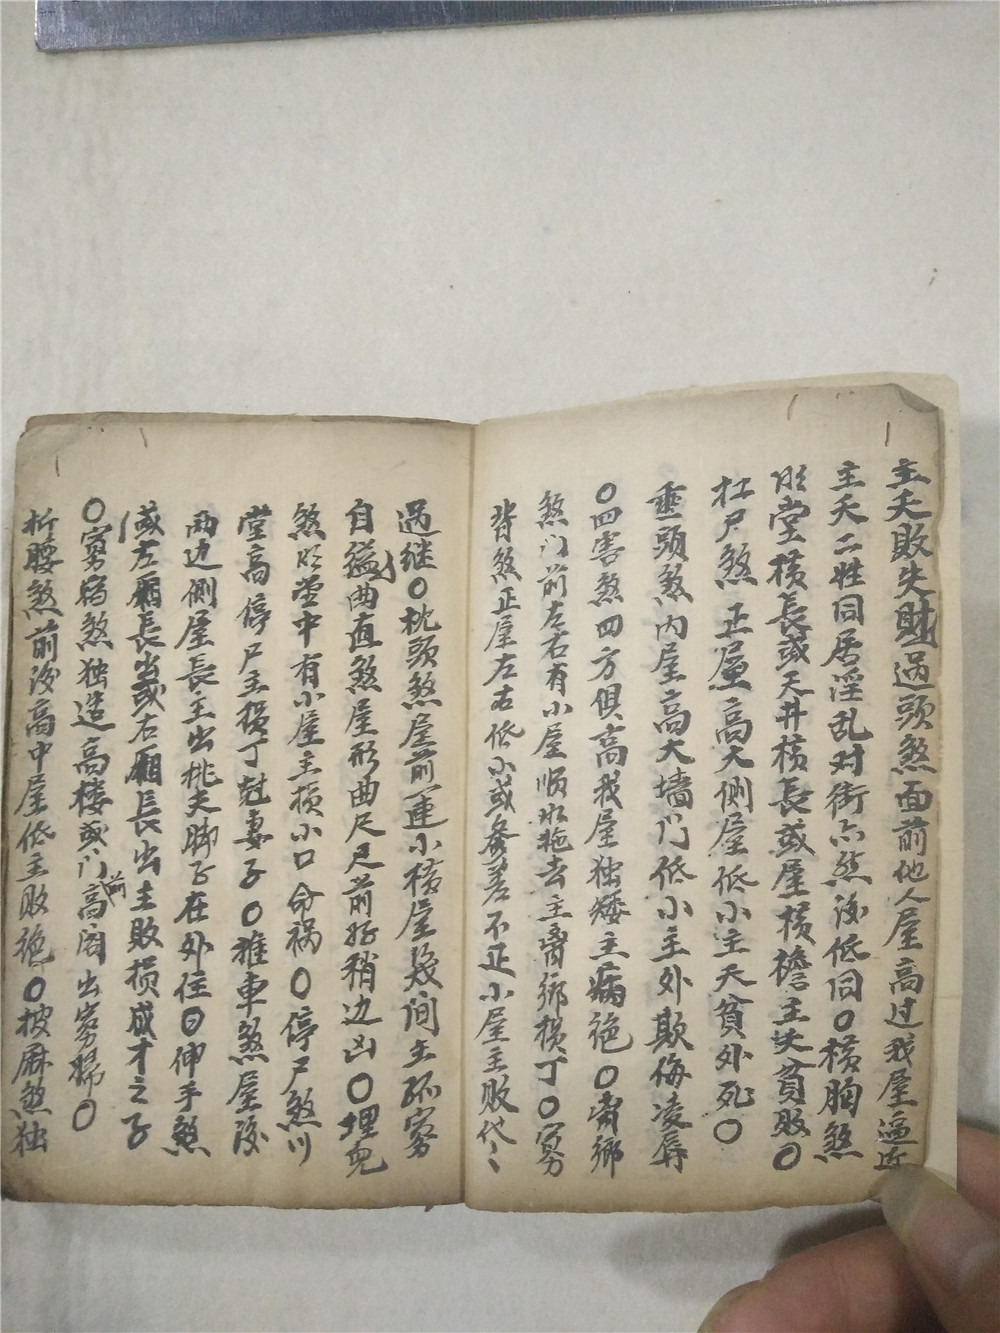 主夭敗失財過頭煞面前他人屋高过我屋逼近
主夭二姓同居淫乱对街亦煞後低同○横胸煞
明堂横長或天井横長或屋横檐主失貧敗○
扛尸煞正屋高大侧屋低小主夭貧外死○
垂頭煞内屋高大墙门低小主外欺侮凌辱
○四害煞四方俱高我屋独矮主病絶○离鄉
煞门前左右有小屋順水拖去主离鄉损丁○寡
背煞正屋左右低小或参差不正小屋主败代々
过继○枕頭煞屋前一連小横屋幾间主孤寡
自縊○曲直煞屋形曲尺尺前好稍边凶○埋兒
煞明堂中有小屋主损小口命祸○停尸煞川
堂高停尸主损丁尅妻子○推車煞屋後
两边侧屋長主出桃夫脚子在外住○伸手煞
或左厢長出或右厢長出主敗损成才之子
○寡宿煞独造高楼或门前高阁出寡婦○
折腰煞前後高中屋低主敗絶○披麻煞独